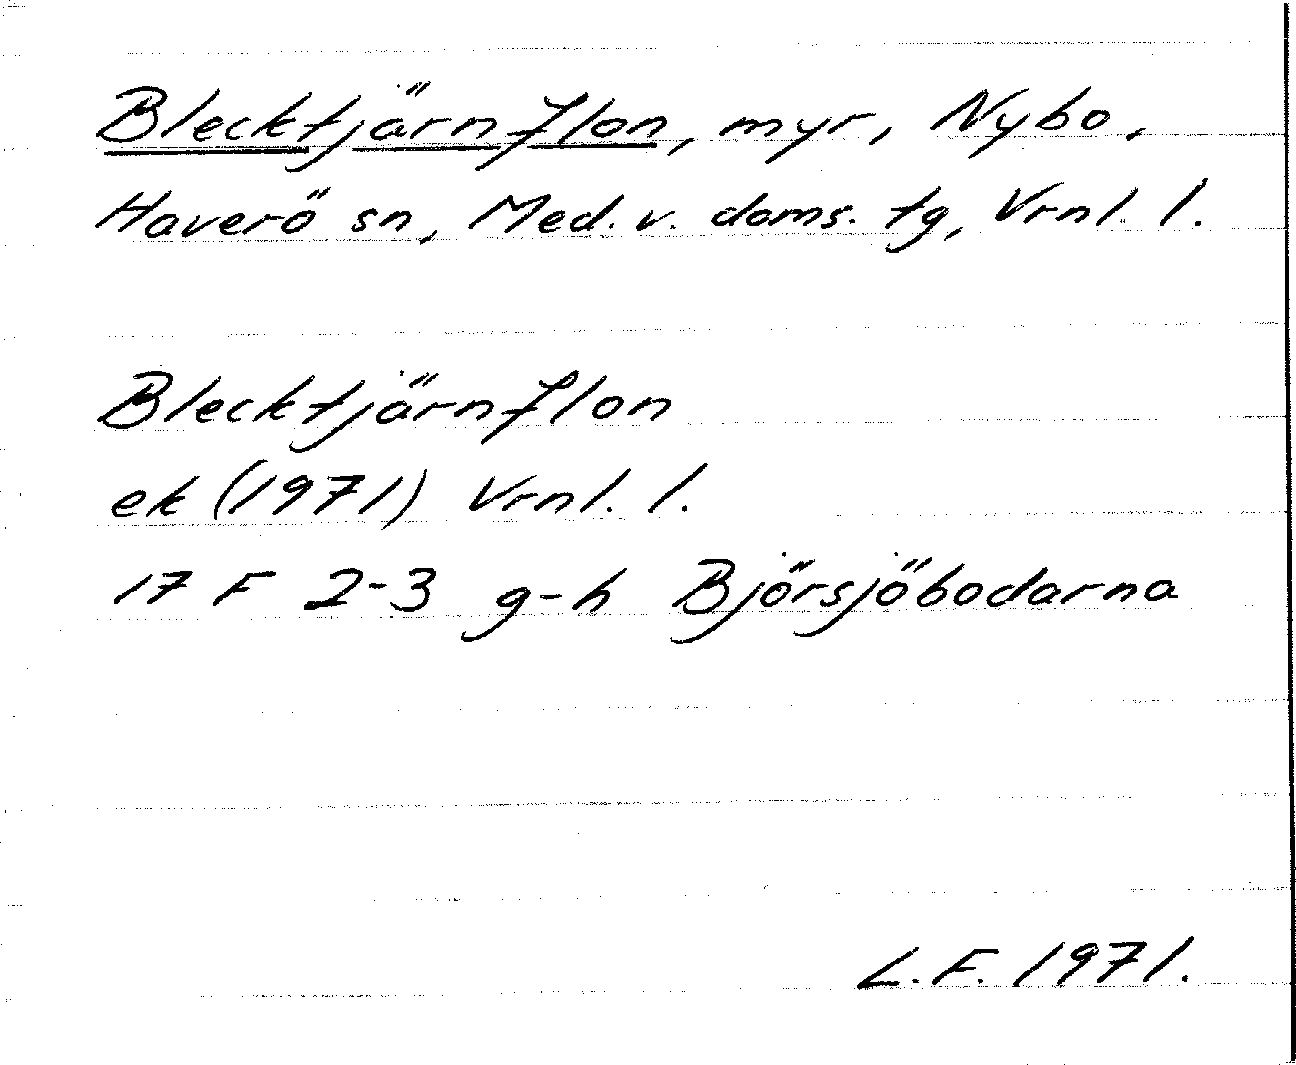 Blecktjärnflon, myr, Nybo,
Haverö sn, Med. v. doms. tg, Vrnl. l.
Blecktjärnflon
ek (1971) Vrnl. l.
17 F 2-3 g-h Björsjöbodarna
L.F. 1971.